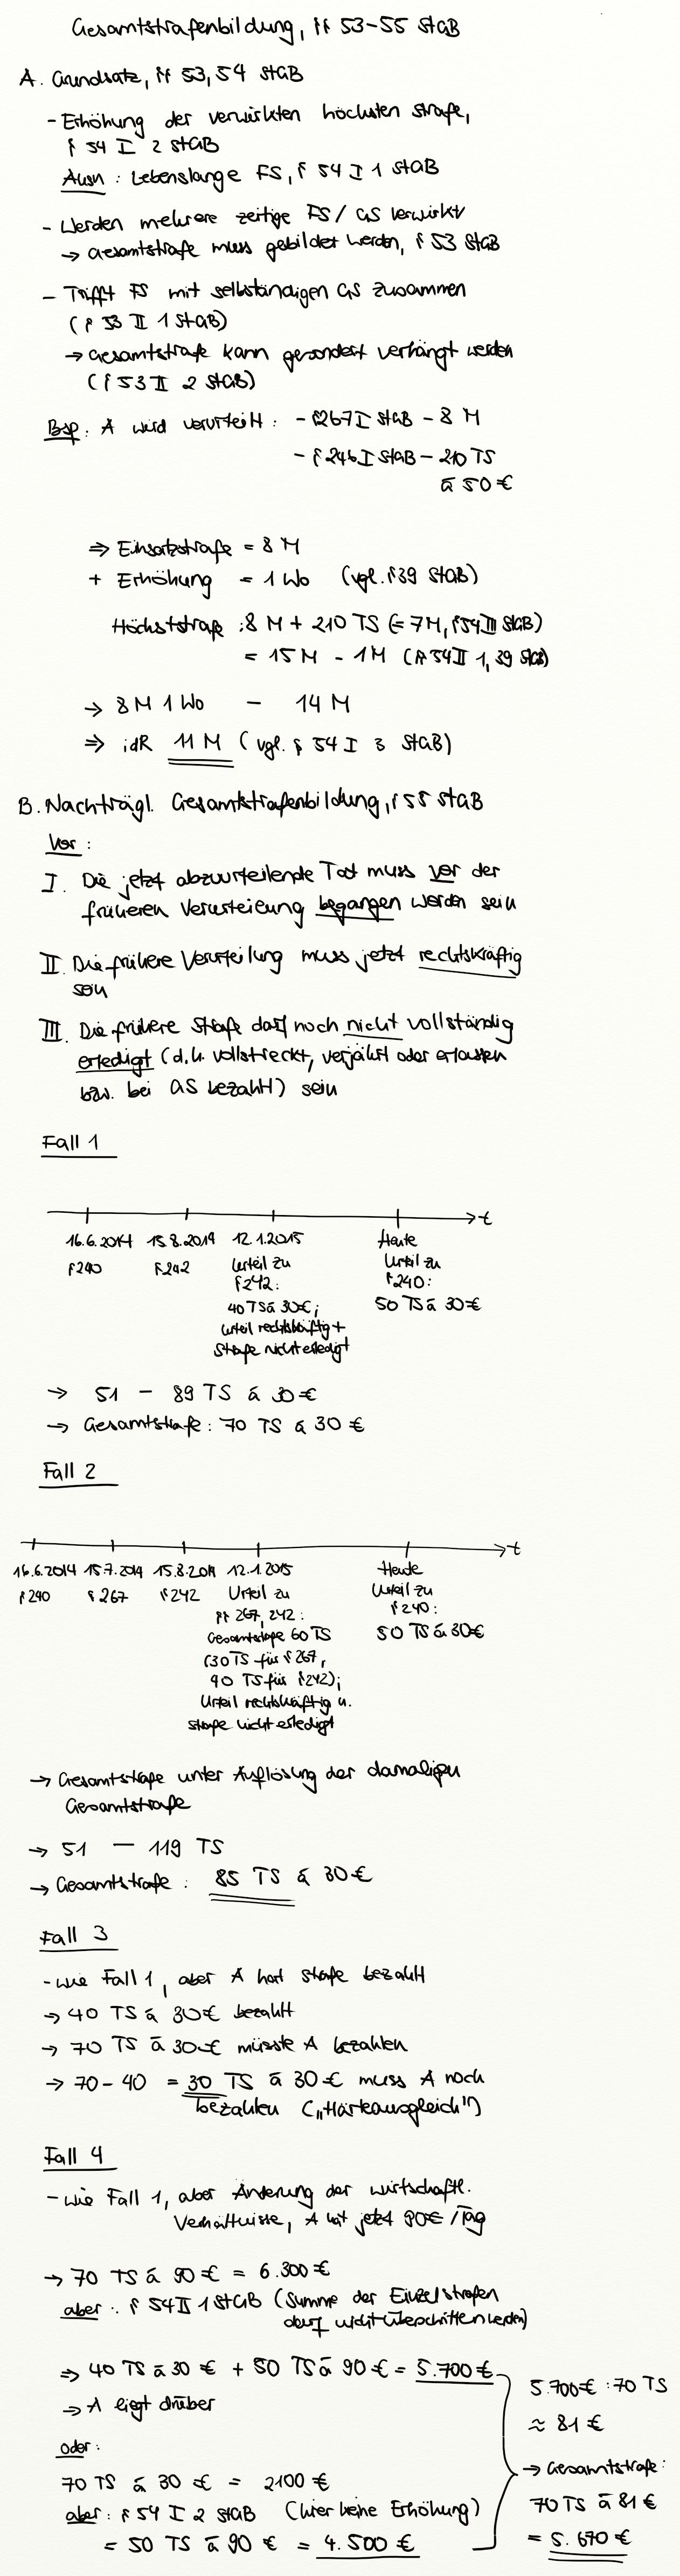 Gesamtstrafenbildung, §§ 53-55 StGB
A. Grundsatz, §§ 53, 54 StGB
- Erhöhung der verwirkten höchsten Strafe,
§ 54 I 2 StGB
Ausn : Lebenslange FS, § 54 I 1 StGB
- Werden mehrere zeitige FS / GS verwirkt
→ Gesamtstrafe muss gebildet werden, § 53 StGB
- Trifft FS mit selbständigen GS zusammen
(§ 53 II 1 StGB)
→ Gesamtstrafe kann gesondert verhängt werden
(§ 53 II 2 StGB)
Bsp: A wird verurteilt: - §267 I StGB - 8 M
- § 246 I StGB - 210 TS
à 50 €
⇒ Einsatzstrafe = 8 M
+ Erhöhung = 1 Wo (vgl. § 39 StGB)
Höchststrafe : 8 M + 210 TS (= 7 M, § 54 III StGB)
= 15 M - 1 M (§§ 54 II 1, 39 StGB)
→ 8 M 1 Wo - 14 M
⇒ idR 11 M (vgl. § 54 I 3 StGB)
B. Nachträgl. Gesamtstrafenbildung, § 55 StGB
Vor :
I. Die jetzt abzuurteilende Tat muss vor der
früheren Verurteilung begangen worden sein
II. Die frühere Verurteilung muss jetzt rechtskräftig
sein
III. Die frühere Strafe darf noch nicht vollständig
erledigt (d.h. vollstreckt, verjährt oder erlassen
bzw. bei GS bezahlt) sein
Fall 1
t
16.6.2014 15.8.2014 12.1.2015 Heute
§ 240 § 242 Urteil zu Urteil zu
§ 242: § 240:
40 TS à 30€; 50 TS à 30€
Urteil rechtskräftig +
Strafe nicht erledigt
→ 51 - 89 TS à 30 €
→ Gesamtstrafe: 70 TS à 30 €
Fall 2
t
16.6.2014 15.7.2014 15.8.2014 12.1.2015 Heute
§ 240 § 267 § 242 Urteil zu Urteil zu
§§ 267, 242 : § 240:
Gesamtstrafe 60 TS 50 TS à 30€
(30 TS für § 267,
40 TS für § 242);
Urteil rechtskräftig u.
Strafe nicht erledigt
→ Gesamtstrafe unter Auflösung der damaligen
Gesamtstrafe
→ 51 - 119 TS
→ Gesamtstrafe : 85 TS à 30 €
Fall 3
- wie Fall 1, aber A hat Strafe bezahlt
→ 40 TS à 30 € bezahlt
→ 70 TS à 30 € müsste A bezahlen
→ 70 - 40 = 30 TS à 30 € muss A noch
bezahlen („Härteausgleich")
Fall 4
- wie Fall 1, aber Änderung der wirtschaftl.
Verhältnisse, A hat jetzt 90€ / Tag
→ 70 TS à 90 € = 6.300 €
aber : § 54 II 1 StGB (Summe der Einzelstrafen
darf nicht überschritten werden)
⇒ 40 TS à 30 € + 50 TS à 90 € = 5.700 €
→ A liegt drüber
oder:
70 TS à 30 € = 2100 €
aber: § 54 I 2 StGB (hier keine Erhöhung)
= 50 TS à 90 € = 4.500 €
5.700€ : 70 TS
≈ 81 €
→ Gesamtstrafe:
70 TS à 81 €
= 5.670 €